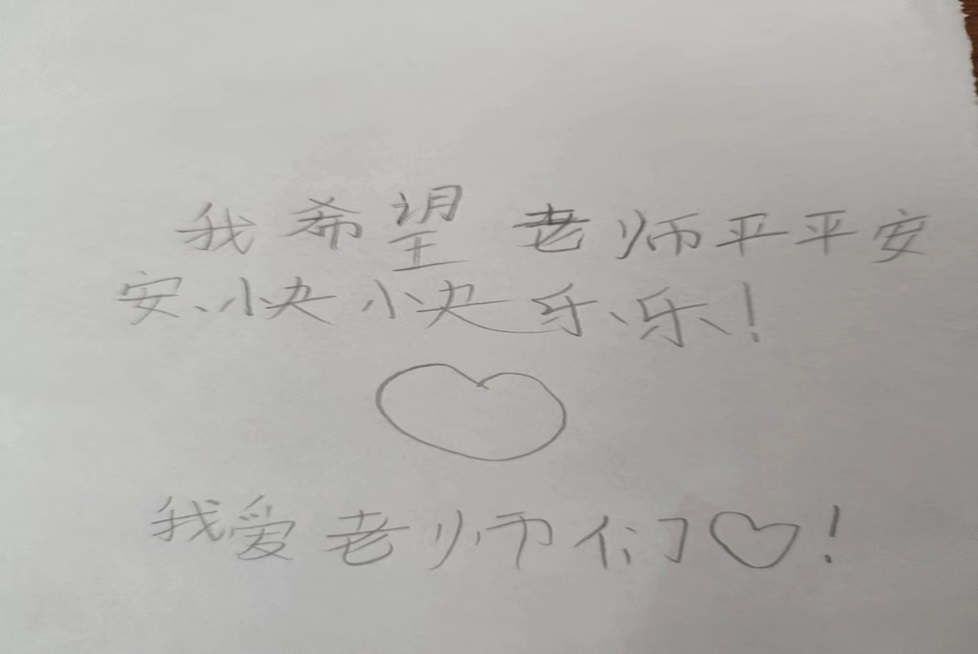 我希望老师平平安
安、快快乐乐！
我爱老师们♡！